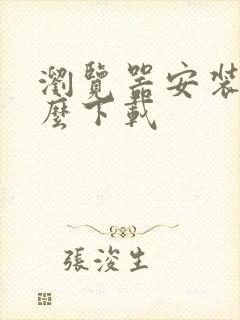 瀏覽器安裝
麼下載
張浚生